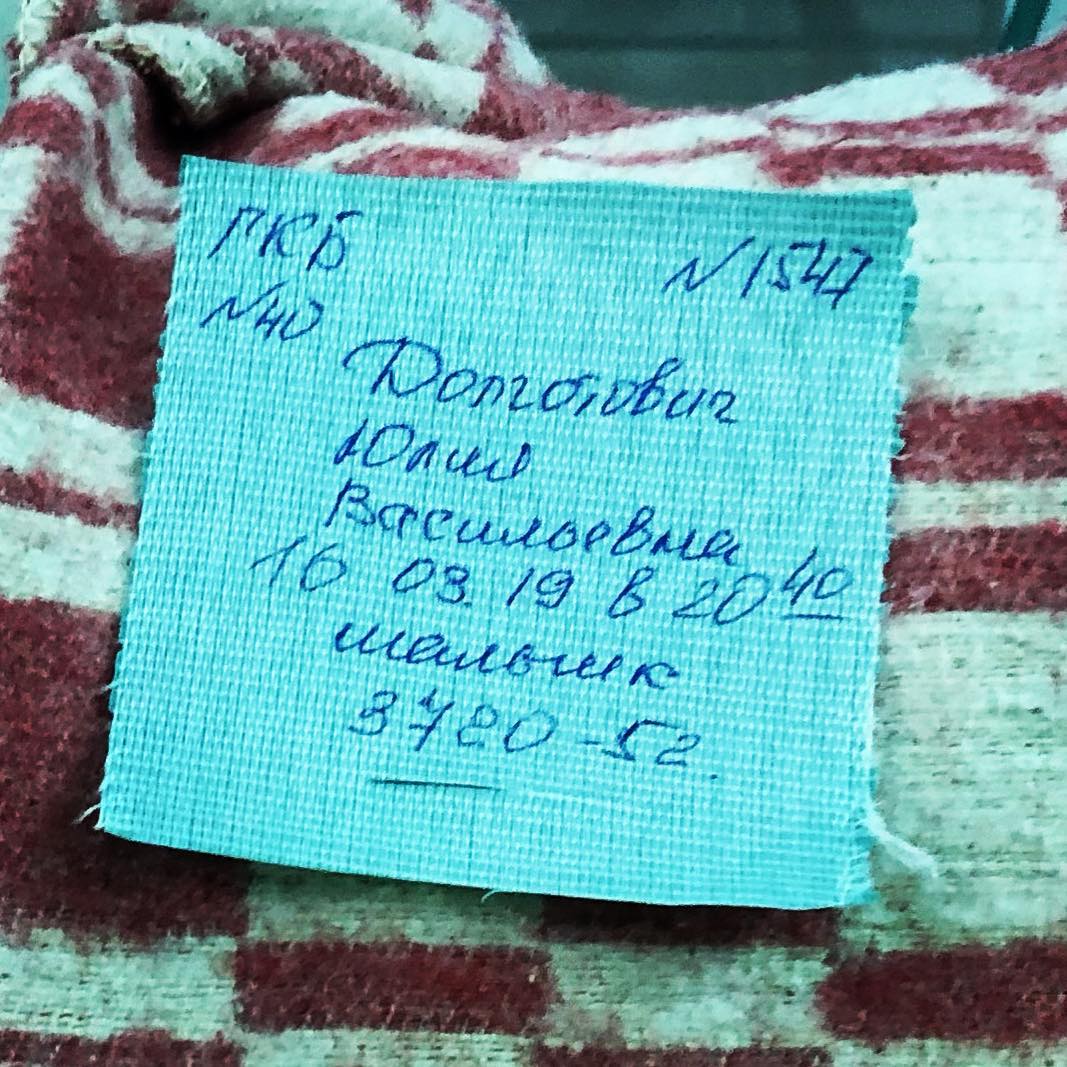 ГКБ №1547
№40
Долготович
Юлия
Васильевна
16 03. 19 в 20 40
мальчик
3720 - 52.